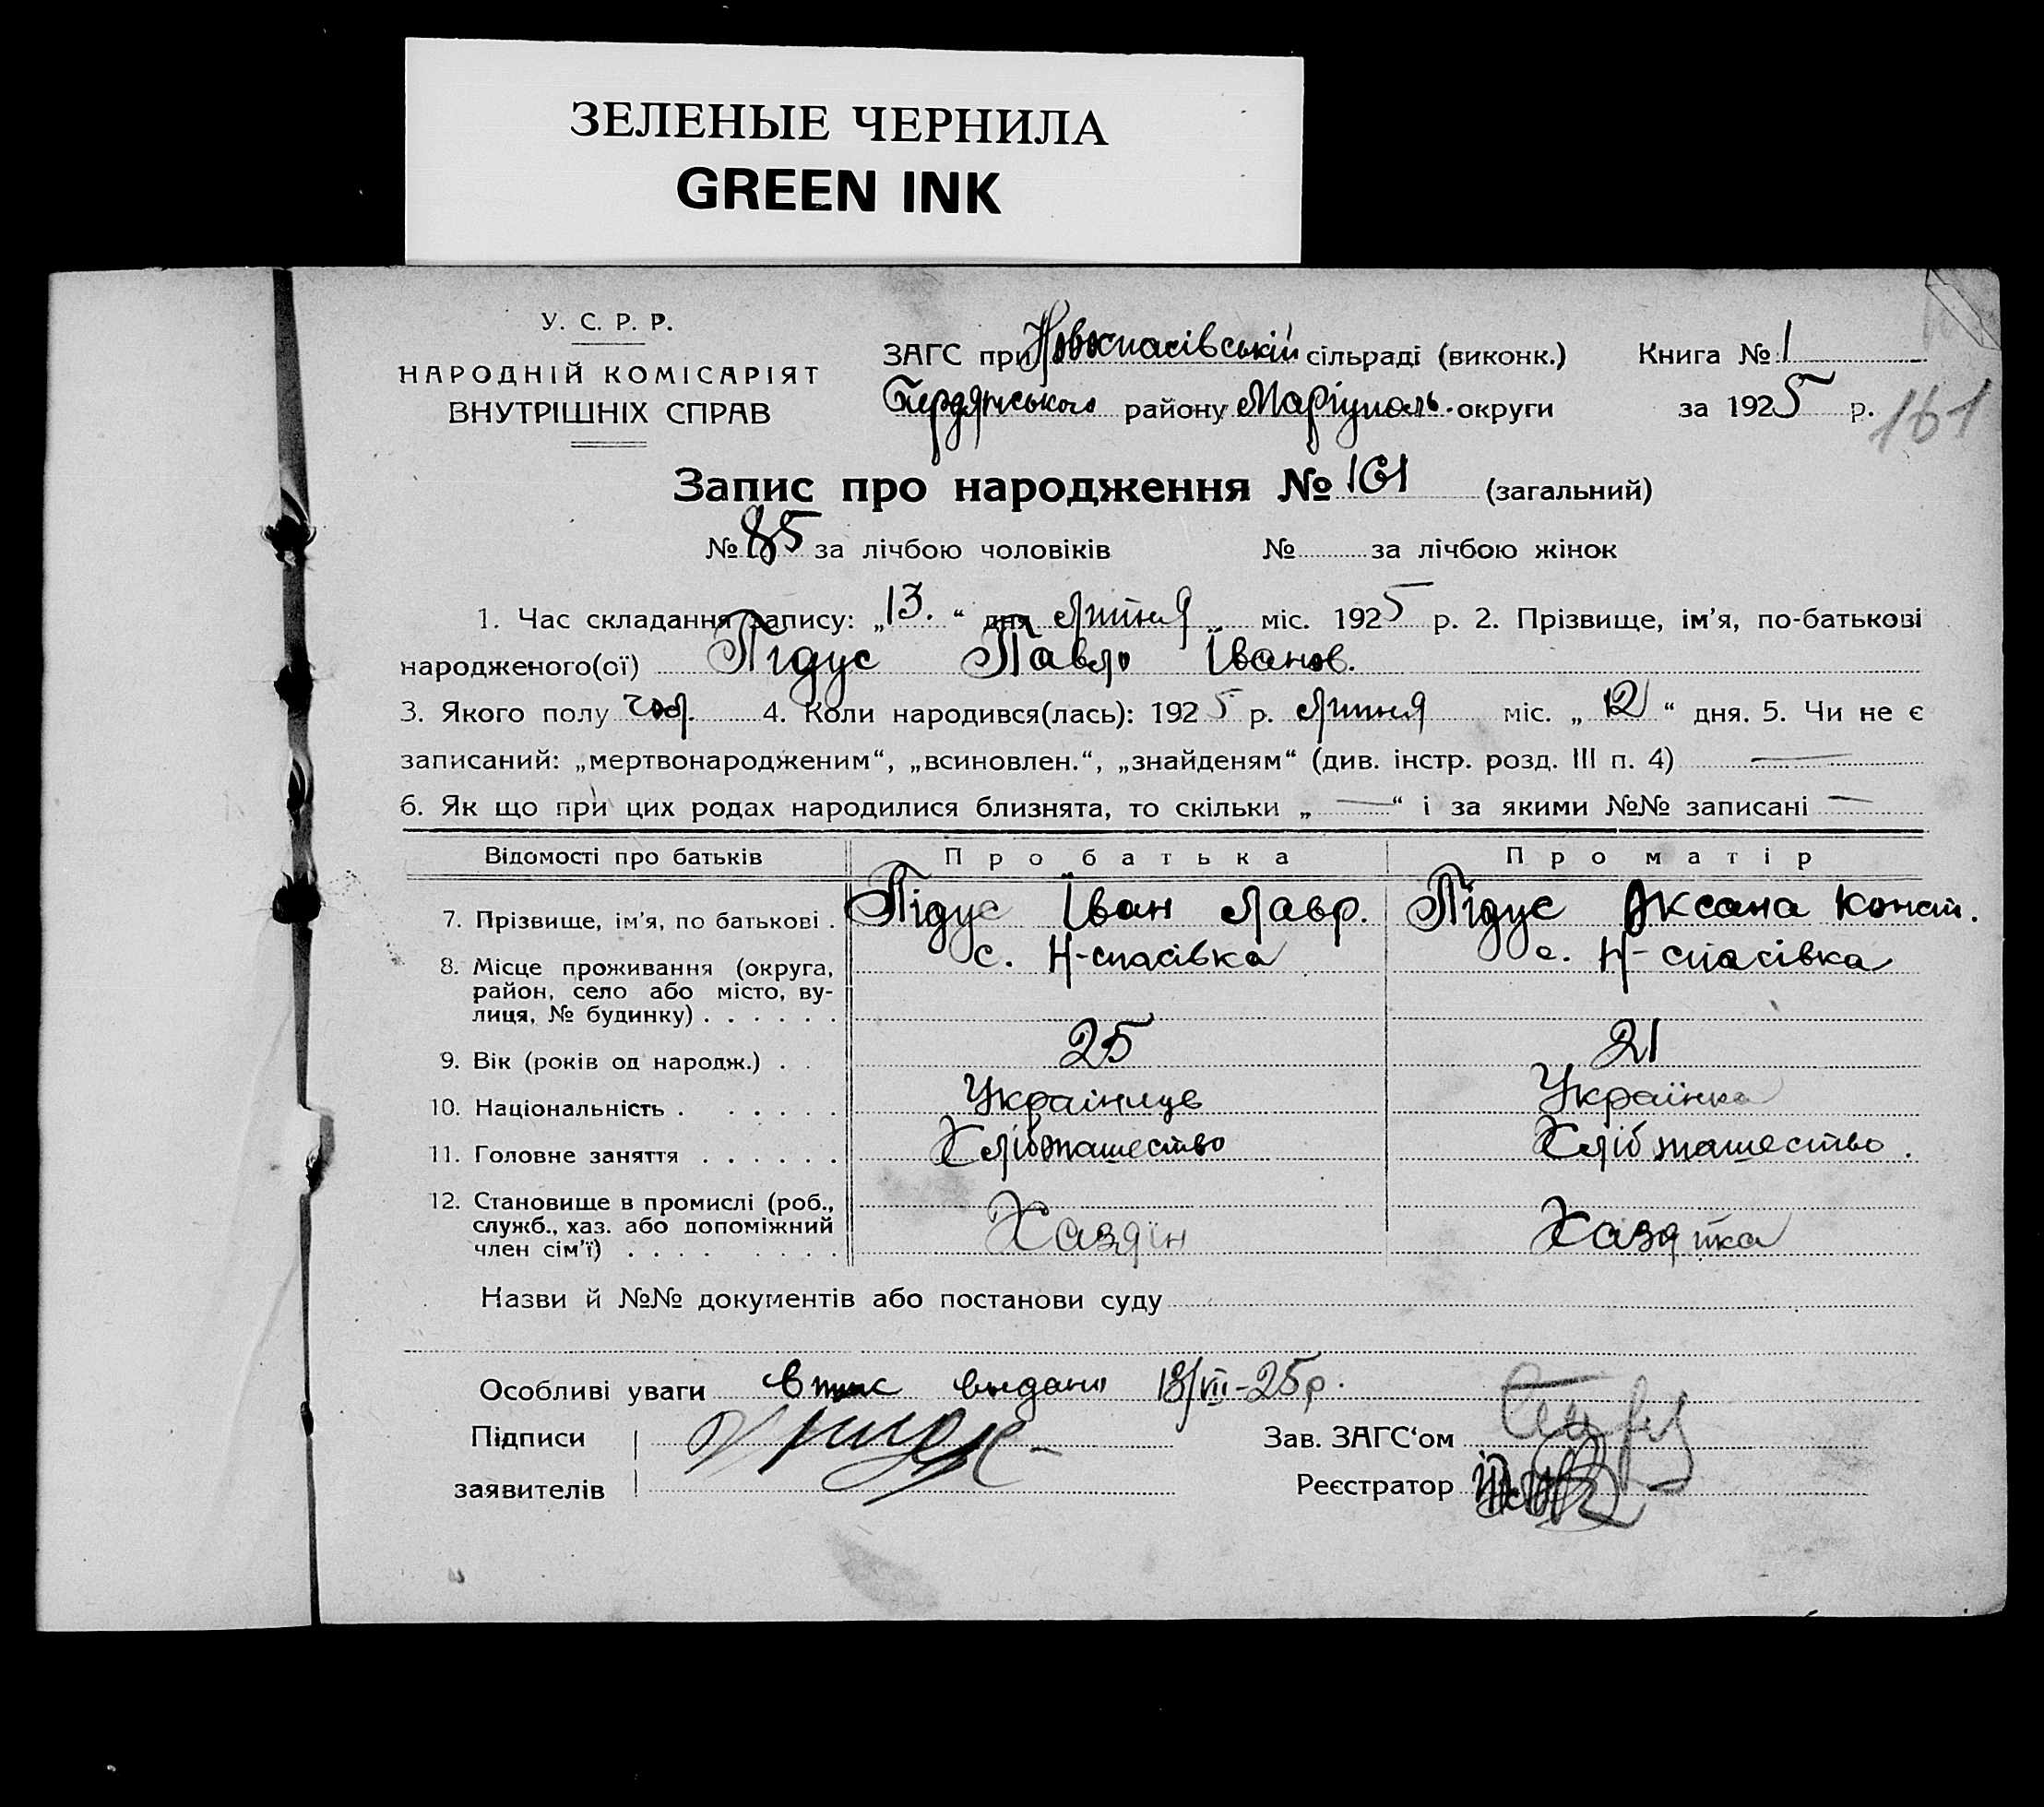 ЗЕЛЕНЫЕ ЧЕРНИЛА
GREEN INK
У. С. Р. Р.
НАРОДНІЙ КОМІСАРІЯТ
ВНУТРІШНІХ СПРАВ
ЗАГС при Новоспасівській сільраді (виконк.) Книга № 1
Бердянського району Маріуполь. округи за 1925 р.
161
Запис про народження № 161 (загальний)
№ 85 за лічбою чоловіків № за лічбою жінок
1. Час складання запису: „13.“ дня липня міс. 1925 р. 2. Прізвище, ім'я, по-батькові
народженого(ої) Підус Павло Іванов.
3. Якого полу чол. 4. Коли народився(лась): 1925 р. липня міс. „12“ дня. 5. Чи не є
записаний: „мертвонародженим“, „всиновлен.“, „знайденям“ (див. інстр. розд. III п. 4) —
6. Як що при цих родах народилися близнята, то скільки „—“ і за якими №№ записані —
Відомості про батьків Про батька Про матір
7. Прізвище, ім'я, по батькові . Підус Іван Лавр. Підус Оксана Конст.
8. Місце проживання (округа, с. Н-спасівка с. Н-спасівка
район, село або місто, ву-
лиця, № будинку) . . . . . .
9. Вік (років од народж.) . . 25 21
10. Національність . . . . . . Українць Українка
11. Головне заняття . . . . . . Хлібпашество Хлібпашество.
12. Становище в промислі (роб.,
служб., хаз. або допоміжний Хазяїн Хазяйка
член сім'ї) . . . . . . . .
Назви й №№ документів або постанови суду
Особливі уваги выдано 13/VII-25р.
Підписи Зав. ЗАГС'ом
заявителів Реєстратор